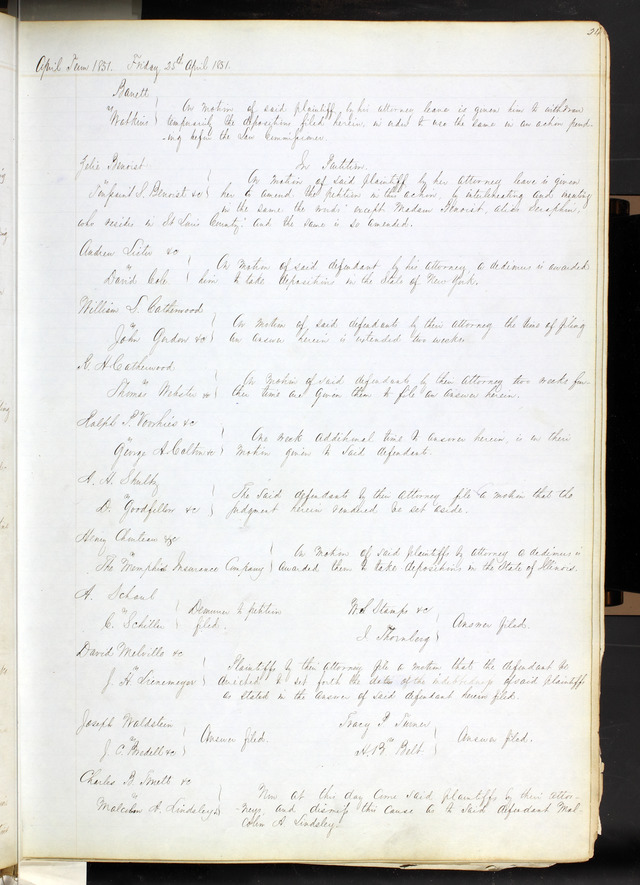 April Term 1851. Friday 25th April 1851.
Barrett
vs
Watkins } On motion of said plaintiff, by his attorney leave is given him to withdraw
temporarily the depositions filed herein, in order to use the same in an action pend-
-ing before the Law Commissioner.
Felix Benoist In Partition
vs
S. Benoist &c } On motion of said plaintiff by her attorney leave is given
her to amend the petition in this action, by interlineating and inserting
in the same the words "except Madam Benoist, alias Seraphin,
who resides in St Louis County" and the same is so amended.
Andrew Lister &c
vs
David Cole } On motion of said defendant by his attorney, a dedimus is awarded
him to take depositions in the State of New York.
William S. Catherwood
vs
John Gordon &c } On motion of said defendants by their attorney the time of filing
an answer herein is extended two weeks.
R. H. Catherwood
vs
Thomas Webster &c } On motion of said defendants by their attorney two weeks fur-
ther time are given them to file an answer herein.
Ralph P. Voorhies &c
vs
George A. Colton &c } One week additional time to answer herein, is on their
motion given to said defendant.
A. H. Shultz
vs
D. Goodfellow &c } The said defendants by their attorney file a motion that the
judgment herein rendered be set aside.
Henry Chouteau &c
vs
The Memphis Insurance Company } On motion of said plaintiffs by attorney a dedimus is
awarded them to take depositions in the State of Illinois.
A. Schaul
vs
C. Schiller } Demurrer to petition
filed.
W. S. Stamps &c
vs
I. Thornberg } Answer filed.
David Melville &c
vs
J. H. } Plaintiffs by their attorney file a motion that the defendant be
directed to set forth the dates of the indebtedness of said plaintiff
as stated in the answer of said defendant herein filed.
Joseph Waldstein
vs
J. C. Bredell &c } Answer filed.
Tracy P. Turner
vs
A. B. Belt } Answer filed.
Charles B. Smett &c
vs
Malcolm A. Lindsley &c } Now at this day come said plaintiffs by their attor-
-neys and dismiss this cause as to said defendant Mal-
colm A. Lindsley.